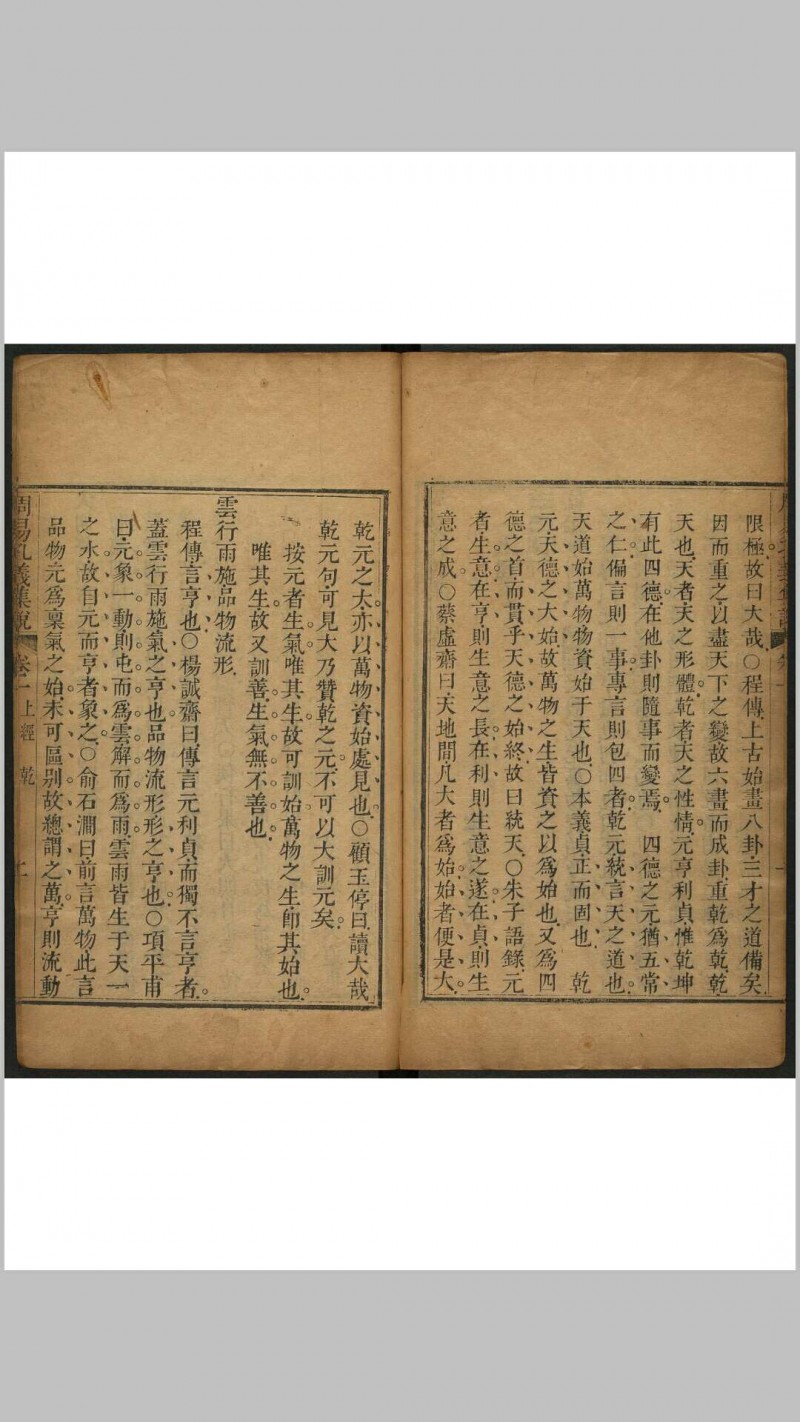 限極故曰大哉○程傳上古始畫八卦三才之道備矣
因而重之以盡天下之變故六畫而成卦重乾爲乾乾
天也天者天之形體乾者天之性情元亨利貞惟乾坤
有此四德在他卦則隨事而變焉　四德之元猶五常
之仁偏言則一事專言則包四者乾元統言天之道也
天道始萬物物資始于天也○本義貞正而固也　乾
元天德之大始故萬物之生皆資之以爲始也又爲四
德之首而貫乎天德之始終故曰統天○朱子語錄元
者生意在亨則生意之長在利則生意之遂在貞則生
意之成○蔡虛齋曰天地間凡大者爲始始者便是大
乾元之大亦以萬物資始處見也○顧玉停曰讀大哉
乾元句可見大乃贊乾之元不可以大訓元矣
按元者生氣唯其生故可訓始萬物之生卽其始也
唯其生故又訓善生氣無不善也
雲行雨施品物流形
程傳言亨也○楊誠齋曰傳言元利貞而獨不言亨者
蓋雲行雨施氣之亨也品物流形形之亨也○項平甫
曰元象一動則屯而爲雲解而爲雨雲雨皆生于天一
之水故自元而亨者象之○俞石澗曰前言萬物此言
品物元爲稟氣之始未可區别故總謂之萬亨則流動
周易孔義集說　卷一　上經　乾